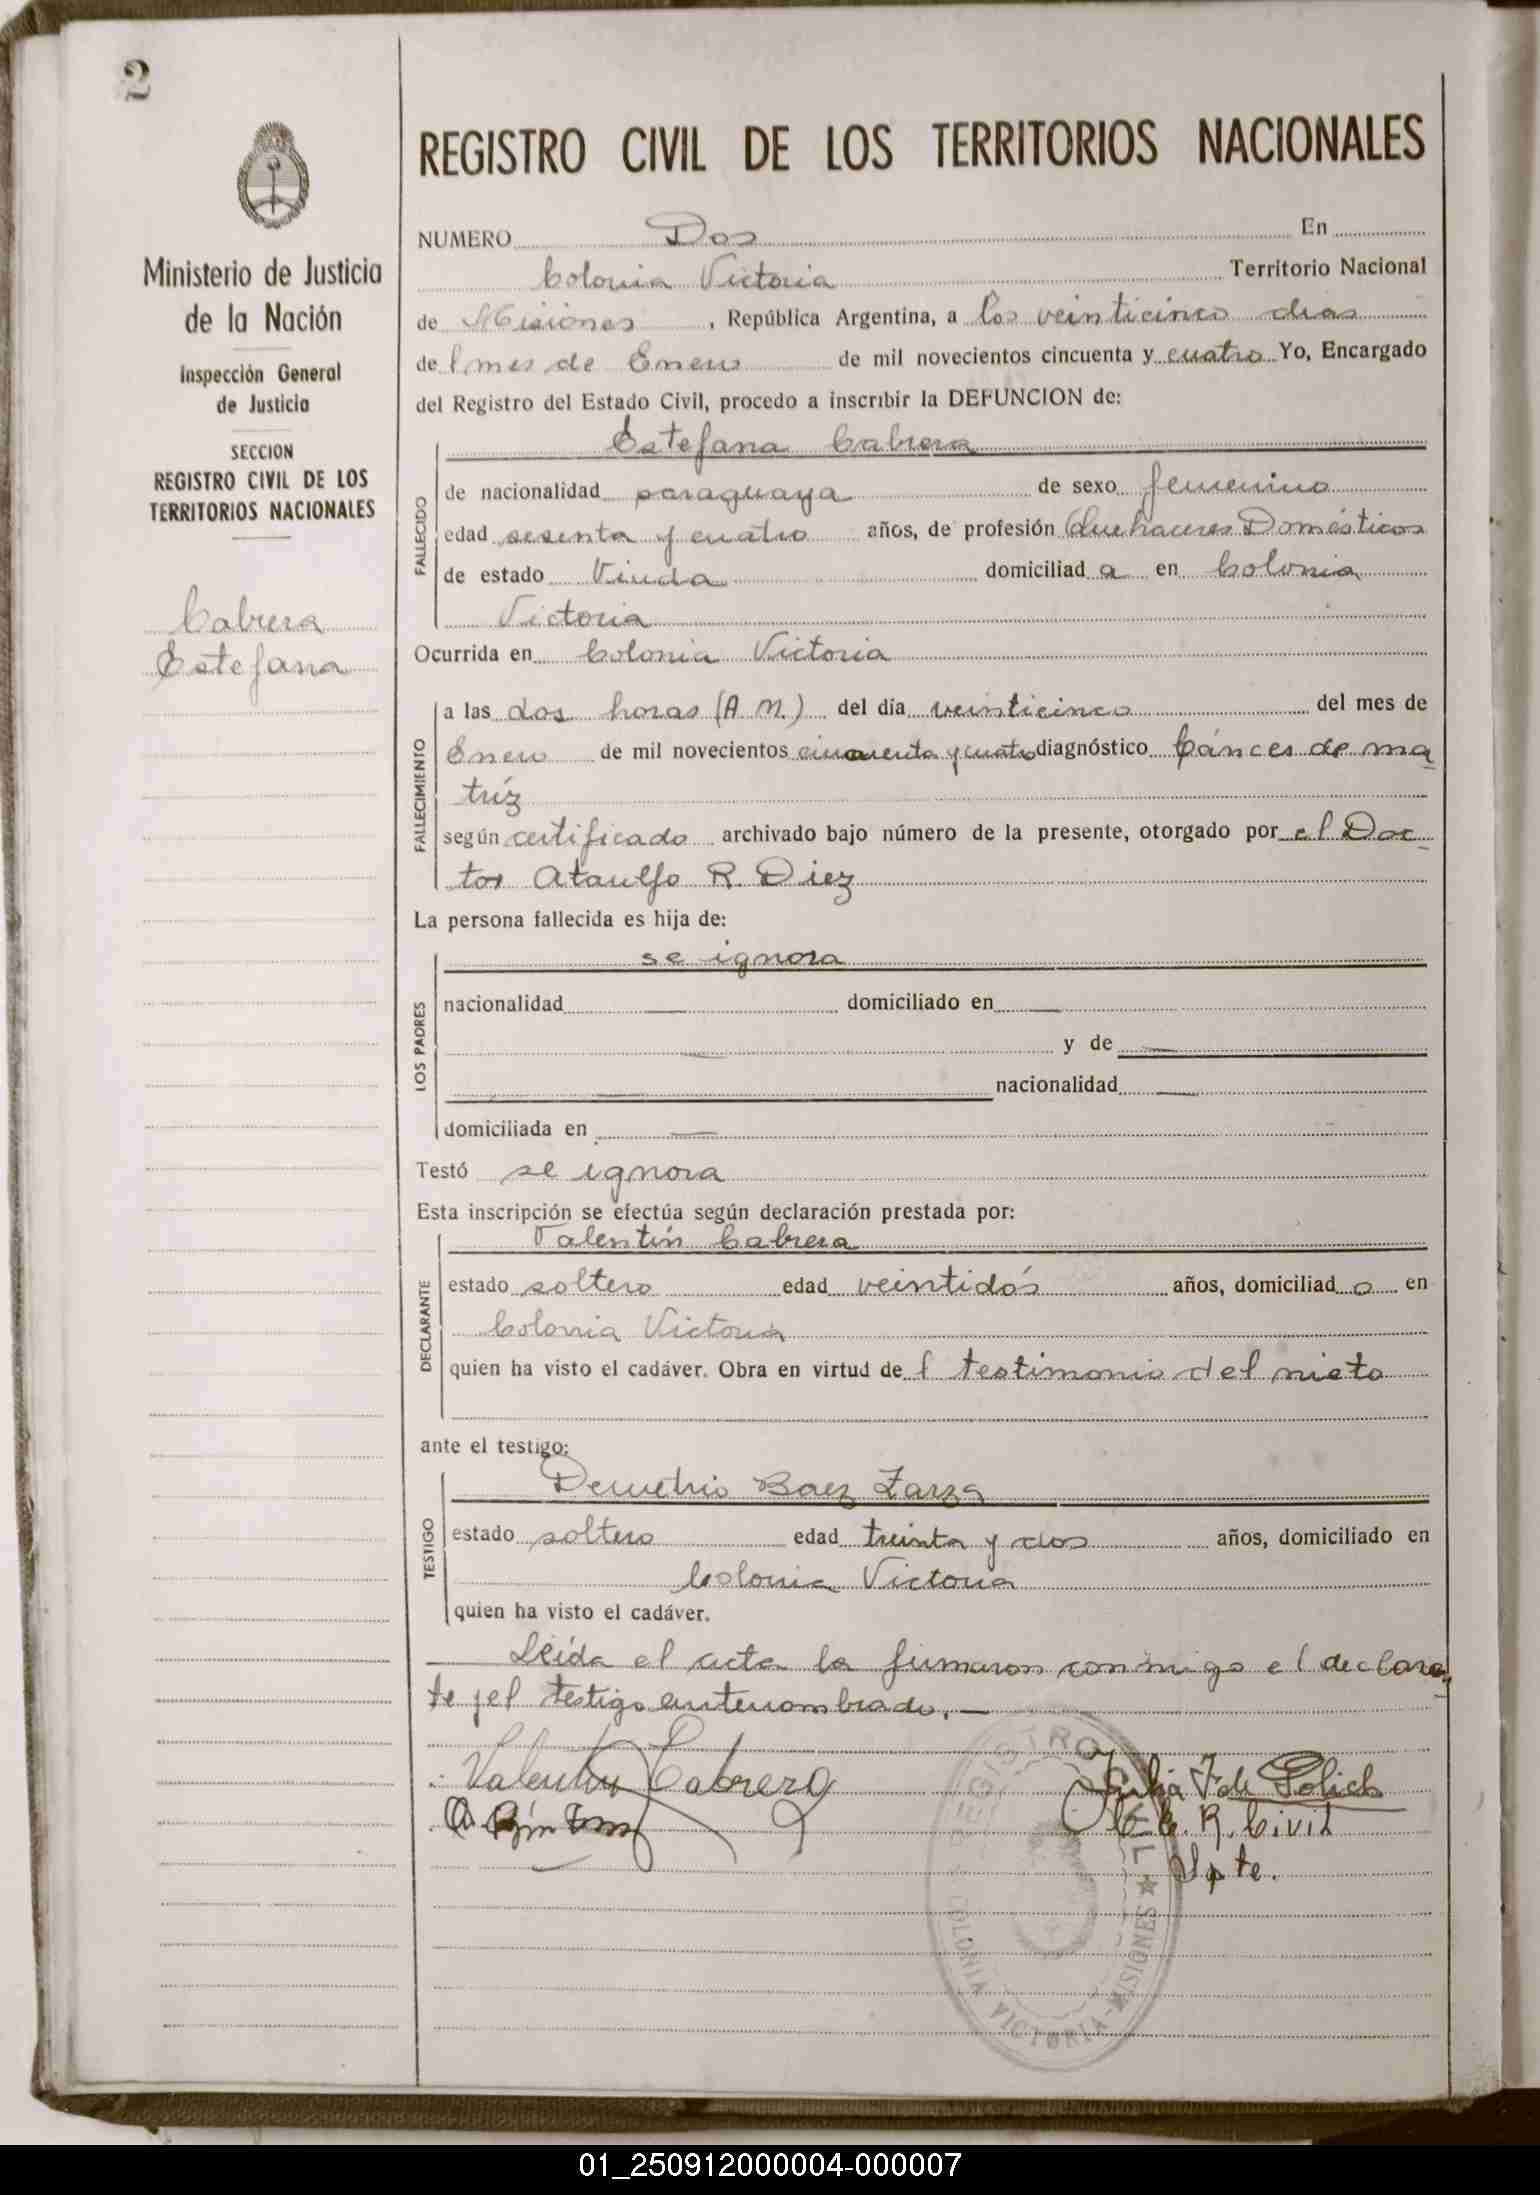 2
Ministerio de Justicia
de la Nación
Inspección General
de Justicia
SECCION
REGISTRO CIVIL DE LOS
TERRITORIOS NACIONALES
Cabrera
Estefana
REGISTRO CIVIL DE LOS TERRITORIOS NACIONALES
NUMERO Dos En
Colonia Victoria Territorio Nacional
de Misiones, República Argentina, a los veinticinco dias
del mes de Enero de mil novecientos cincuenta y cuatro Yo, Encargado
del Registro del Estado Civil, procedo a inscribir la DEFUNCION de:
Estefana Cabrera
FALLECIDO
de nacionalidad paraguaya de sexo femenino
edad sesenta y cuatro años, de profesión Quehaceres Domésticos
de estado Viuda domiciliada en Colonia
Victoria
Ocurrida en Colonia Victoria
FALLECIMIENTO
a las dos horas (A M.) del día veinticinco del mes de
Enero de mil novecientos cincuenta y cuatro diagnóstico Cáncer de ma
tríz
según certificado archivado bajo número de la presente, otorgado por el Doc-
tor Ataulfo R. Diez
La persona fallecida es hija de:
se ignora
LOS PADRES
nacionalidad — domiciliado en —
— y de —
nacionalidad —
domiciliada en —
Testó se ignora
Esta inscripción se efectúa según declaración prestada por:
Valentín Cabrera
DECLARANTE
estado soltero edad veintidós años, domiciliado en
Colonia Victoria
quien ha visto el cadáver. Obra en virtud del testimonio del nieto
ante el testigo:
Demetrio Baez Zarza
TESTIGO
estado soltero edad treinta y dos años, domiciliado en
Colonia Victoria
quien ha visto el cadáver.
Leída el acta la firmaron conmigo el declaran
te y el testigo antenombrado.—
Valentin Cabrera
Julia F. de Polich
E. R. Civil
Spte.
REGISTRO CIVIL ★ COLONIA VICTORIA-MISIONES ★
01_250912000004-000007